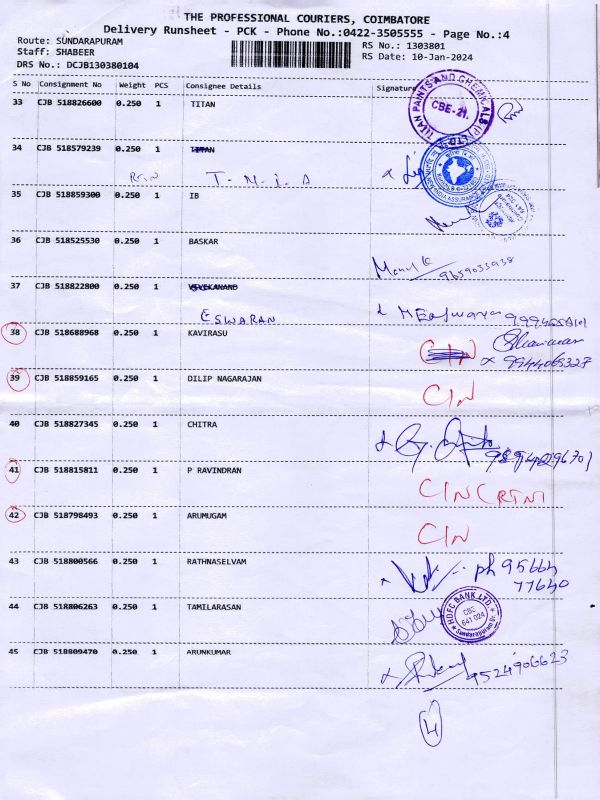 THE PROFESSIONAL COURIERS, COIMBATORE
Delivery Runsheet - PCK - Phone No.:0422-3505555 - Page No.:4
Route: SUNDARAPURAM
Staff: SHABEER
DRS No.: DCJB130380104
RS No.: 1303801
RS Date: 10-Jan-2024
S No Consignment No Weight PCS Consignee Details Signature
33 CJB 518826600 0.250 1 TITAN
TITAN PAINTS AND CHEMICALS (P) LTD
CBE-21.
34 CJB 518579239 0.250 1 TITAN
T-N-I-A
35 CJB 518859300 0.250 1 IB
36 CJB 518525530 0.250 1 BASKAR
9659033938
37 CJB 518822800 0.250 1 VIVEKANAND
ESWARAN
38 CJB 518688968 0.250 1 KAVIRASU
CIN
x 9944069327
39 CJB 518859165 0.250 1 DILIP NAGARAJAN
CIN
40 CJB 518827345 0.250 1 CHITRA
41 CJB 518815811 0.250 1 P RAVINDRAN
CIN
42 CJB 518798493 0.250 1 ARUMUGAM
CIN
43 CJB 518800566 0.250 1 RATHNASELVAM
ph 95664
77640
44 CJB 518806263 0.250 1 TAMILARASAN
HDFC BANK LTD.
CBE
641 024
Sundarapuram Br
45 CJB 518809470 0.250 1 ARUNKUMAR
9524906623
4